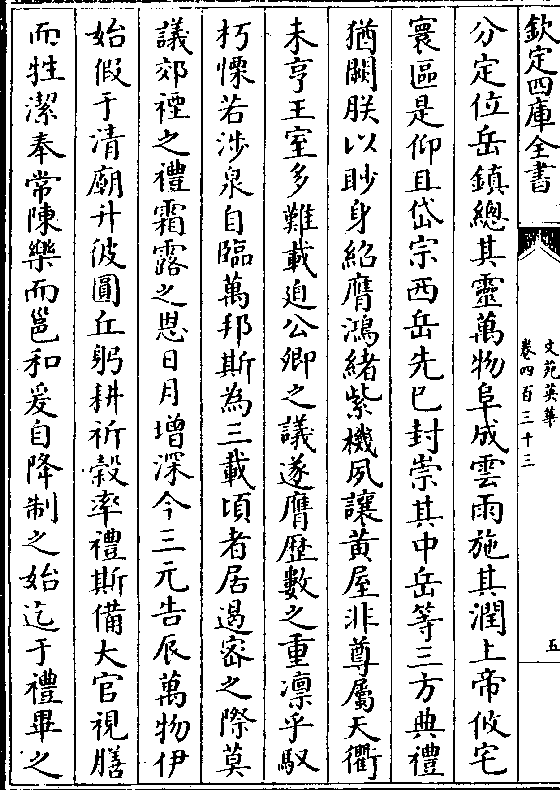 欽定四庫全書
文苑英華
卷四百三十三
五
分定位岳鎮總其靈萬物阜成雲雨施其潤上帝攸宅
寰區是仰且岱宗西岳先已封崇其中岳等三方典禮
猶闕朕以眇身紹膺鴻緒紫機夙讓黃屋非尊屬天衢
未亨王室多難載迫公卿之議遂膺歴數之重凛乎馭
朽慄若涉泉自臨萬邦斯為三載頃者居遏宻之際莫
議郊禋之禮霜露之思日月增深今三元告辰萬物伊
始假于清廟升彼圓丘躬耕祈穀率禮斯備大官視膳
而牲潔奉常陳樂而邕和爰自降制之始迄于禮畢之